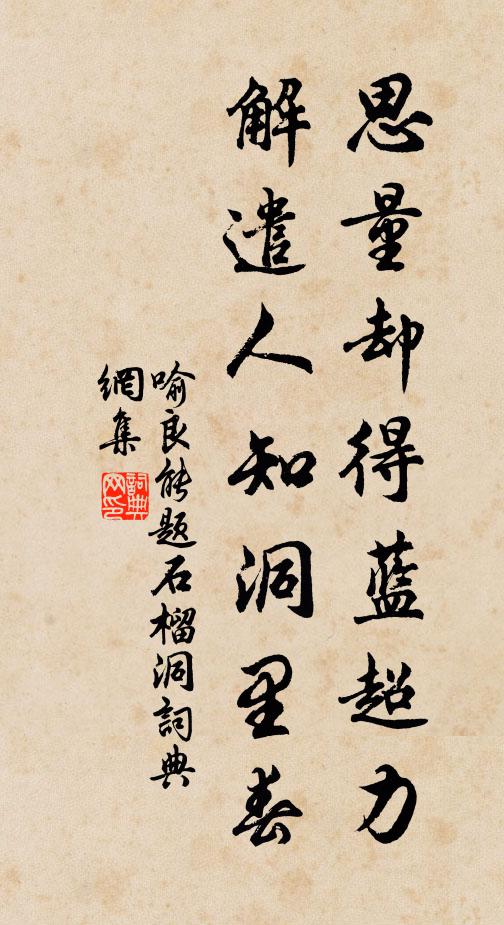 思量却得藍超力
解遣人知洞里春
喻良能題石榴洞詞典
網集
詞典
网印